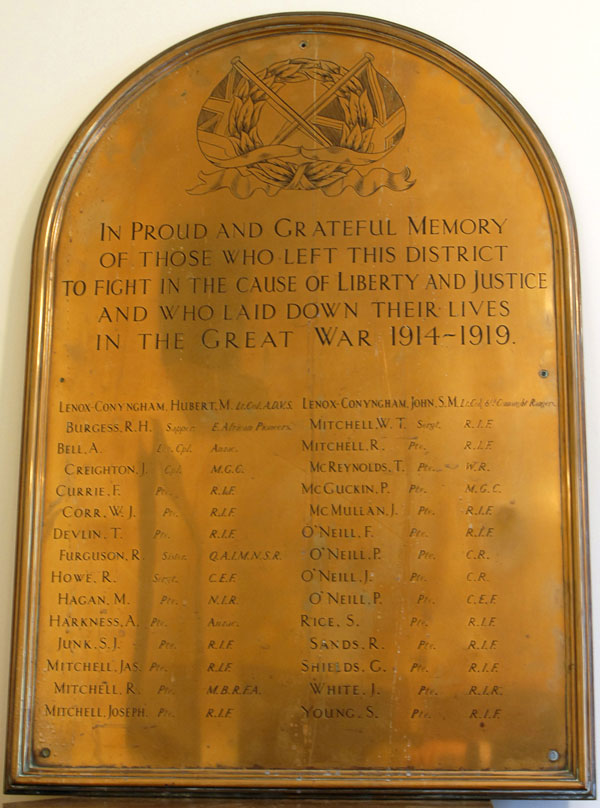 IN PROUD AND GRATEFUL MEMORY
OF THOSE WHO LEFT THIS DISTRICT
TO FIGHT IN THE CAUSE OF LIBERTY AND JUSTICE
AND WHO LAID DOWN THEIR LIVES
IN THE GREAT WAR 1914~1919.
LENOX-CONYNGHAM, HUBERT, M. Lt. Col. A.D.V.S.
BURGESS, R.H. Sapper E. African Pioneers.
BELL, A. Cpl.
CREIGHTON, J. Cpl. M.G.C.
CURRIE, F. Pte. R.I.F.
CORR, W.J. Pte. R.I.F.
DEVLIN, T. Pte. R.I.F.
FURGUSON, R. Sister. Q.A.I.M.N.S.R.
HOWE, R. Sergt. C.E.F.
HAGAN, M. Pte. N.I.R.
HARKNESS, A. Pte.
JUNK, S.J. Pte. R.I.F.
MITCHELL, JAS. Pte. R.I.F.
MITCHELL, R. Pte. M.B.R.F.A.
MITCHELL, JOSEPH. Pte. R.I.F.
LENOX-CONYNGHAM, JOHN, S.M. Lt. Col. 6th Connaught Rangers.
MITCHELL, W.T. Sergt. R.I.F.
MITCHELL, R. Pte. R.I.F.
MCREYNOLDS, T. Pte. W.R.
MCGUCKIN, P. Pte. M.G.C.
MCMULLAN, J. Pte. R.I.F.
O'NEILL, F. Pte. R.I.F.
O'NEILL, P. Pte. C.R.
O'NEILL, J. Pte. C.R.
O'NEILL, P. Pte. C.E.F.
RICE, S. Pte. R.I.F.
SANDS, R. Pte. R.I.F.
SHIELDS, G. Pte. R.I.F.
WHITE, J. Pte. R.I.R.
YOUNG, S. Pte. R.I.F.